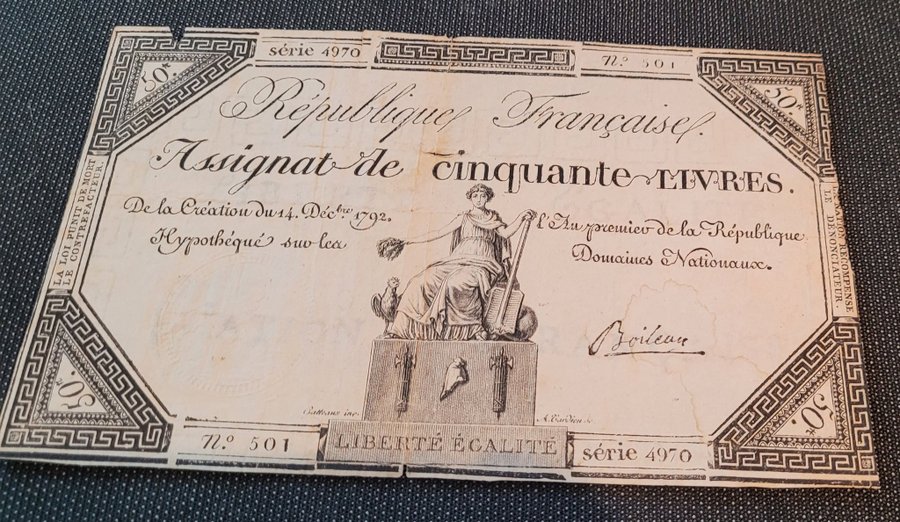 série 4970
n.º 501
50.ᵗ
50.ᵗ
République Française.
Assignat de cinquante LIVRES.
De la Création du 14. Déc.bre 1792. l'An premier de la République
Hypothéqué sur les Domaines Nationaux.
LA LOI PUNIT DE MORT
LE CONTREFACTEUR.
LA NATION RECOMPENSE
LE DENONCIATEUR.
Boileau
Gatteaux inv.
A. Tardieu sc
50.ᵗ
50.ᵗ
n.º 501
LIBERTÉ ÉGALITÉ
série 4970